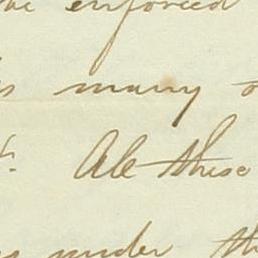 enforced
many
All these
under the